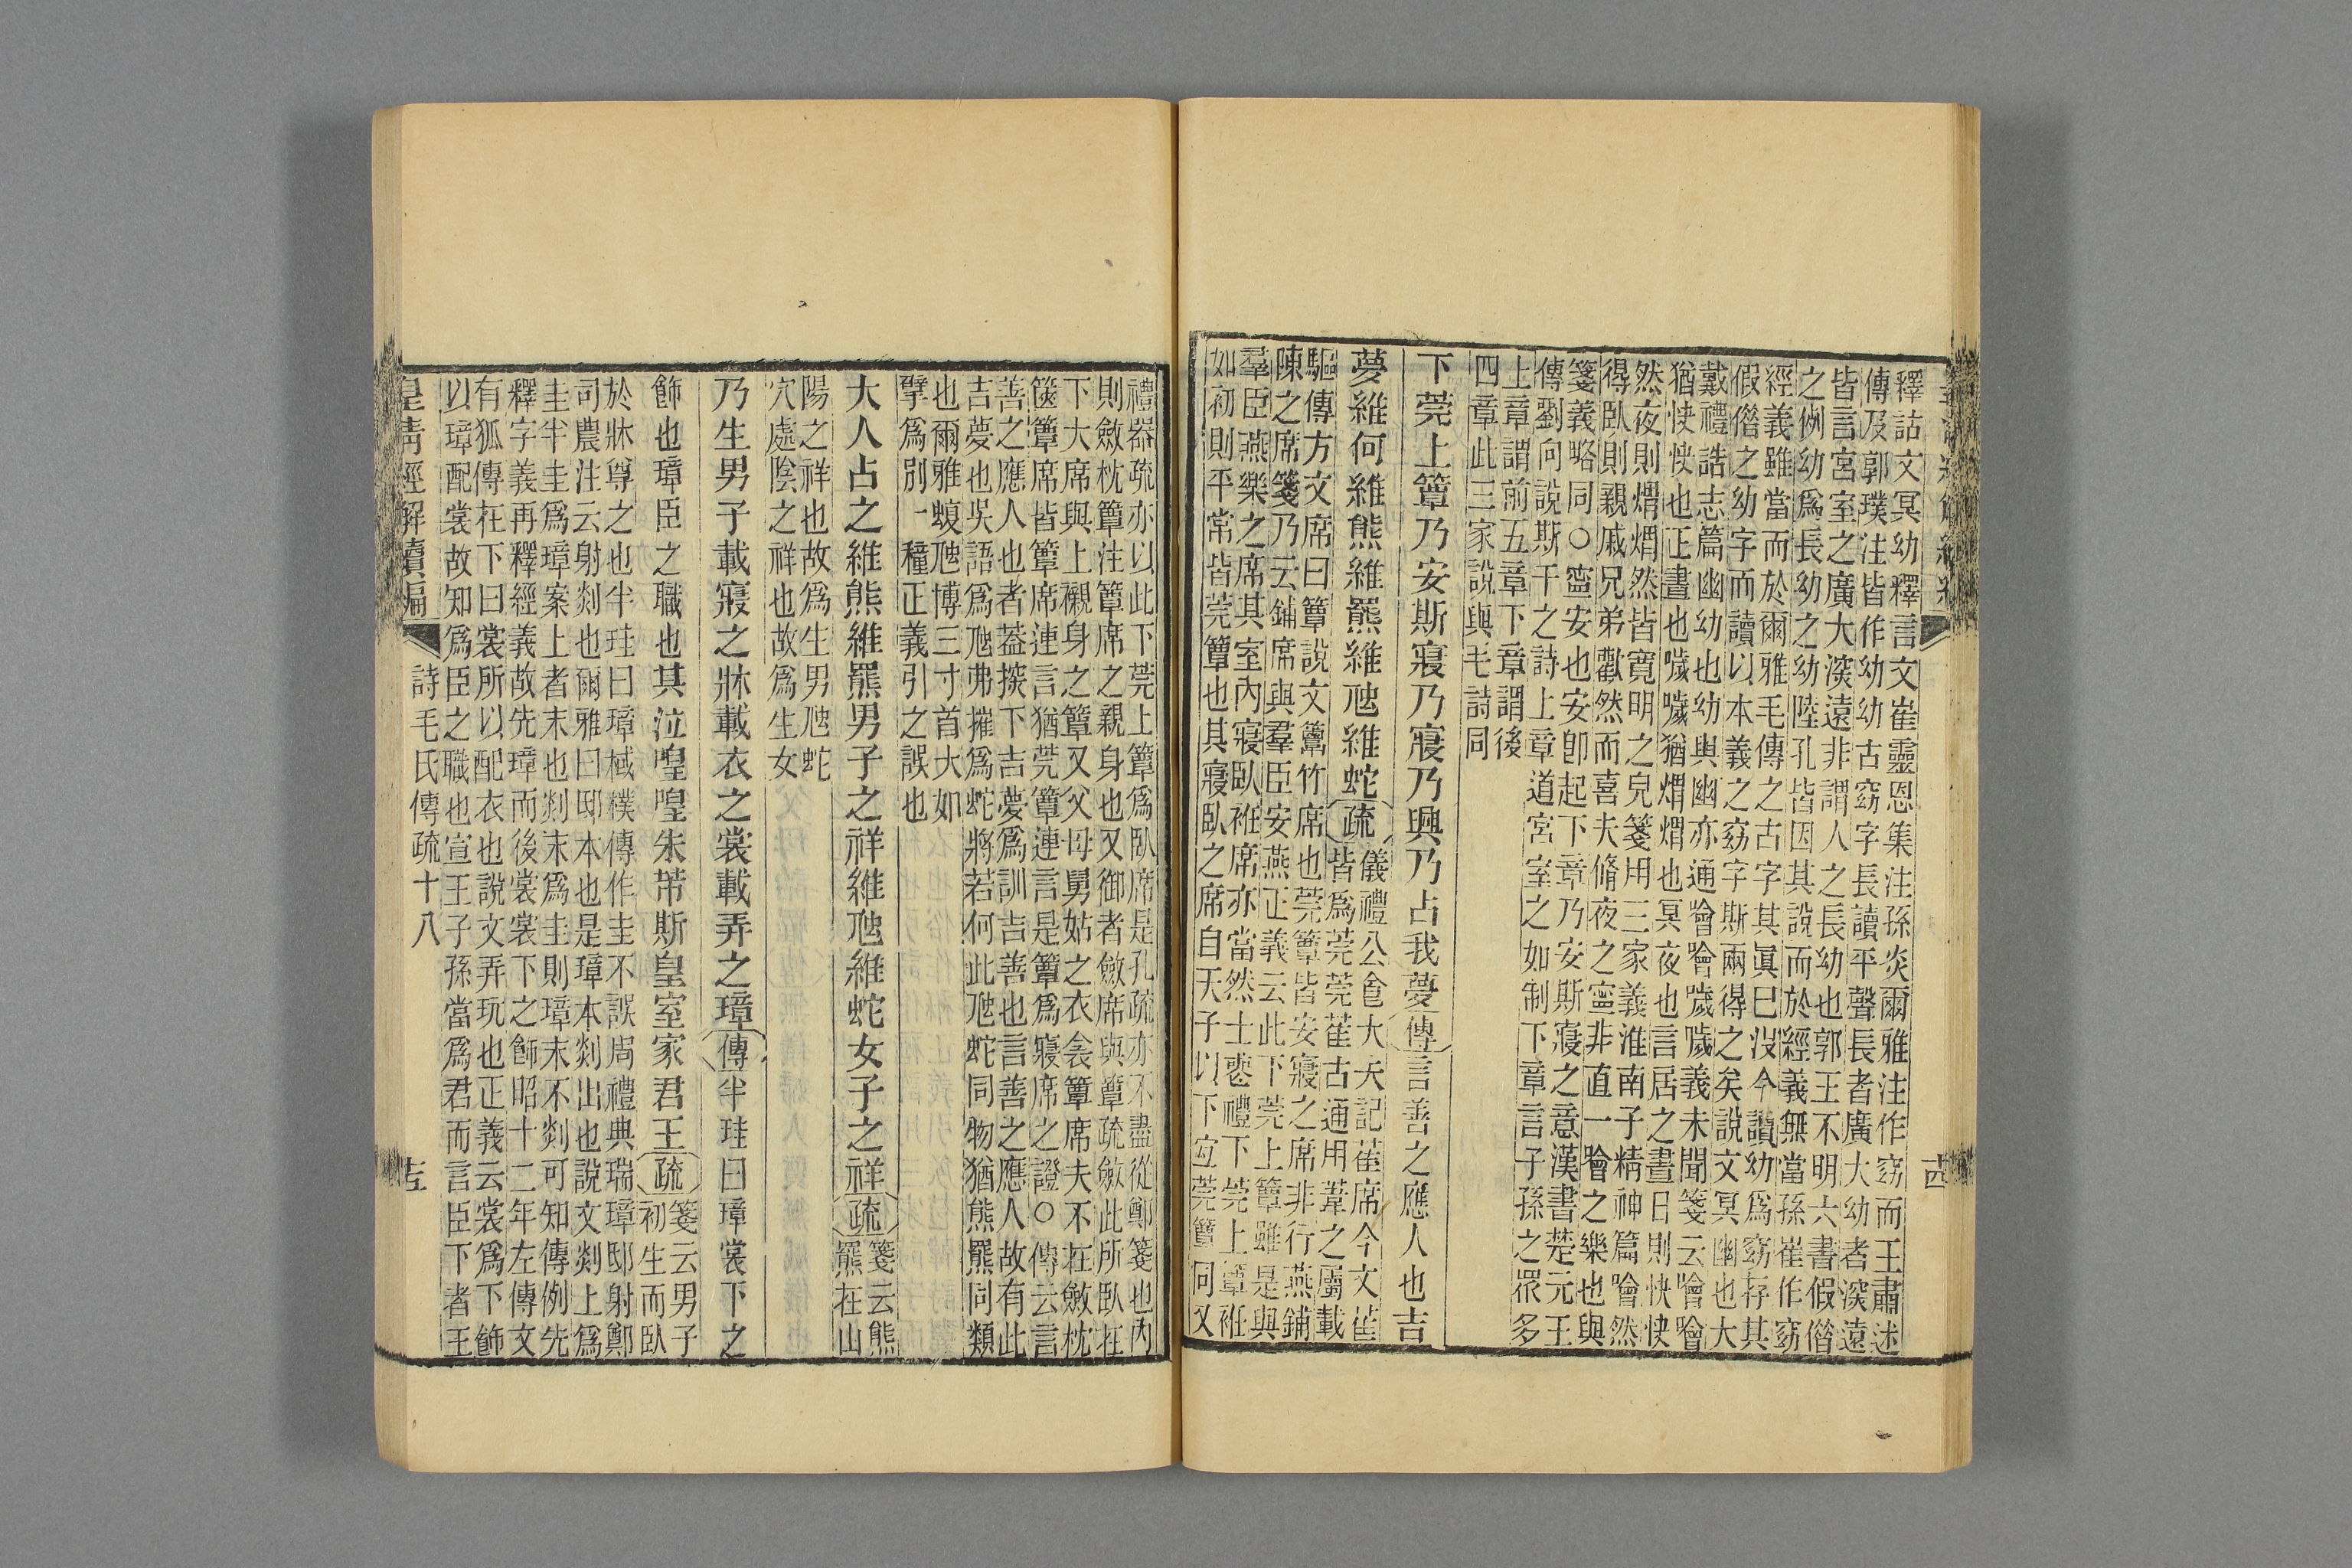 釋詁文冥幼釋言文崔靈恩集注孫炎爾雅注作窈而王肅述
傳及郭璞注皆作幼幼古窈字長讀平聲長者廣大幼者深遠
皆言宮室之廣大深遠非謂人之長幼也郭王不明六書假借
之例幼爲長幼之幼陸孔皆因其說而於經義無當孫崔作窈
經義雖當而於爾雅毛傳之古字其眞巳沒今讀幼爲窈存其
假借之幼字而讀以本義之窈字斯兩得之矣說文冥幽也大
戴禮誥志篇幽幼也幼與幽亦通噲噲噦噦義未聞箋云噲噲
猶快快也正晝也噦噦猶煟煟也冥夜也言居之晝日則快快
然夜則煟煟然皆寬明之皃箋用三家義淮南子精神篇噲然
得臥則親戚兄弟歡然而喜夫脩夜之寧非直一噲之樂也與
箋義略同○寧安也安卽起下章乃安斯寢之意漢書楚元王
傳劉向說斯干之詩上章道宮室之如制下章言子孫之衆多
上章謂前五章下章謂後
四章此三家說與毛詩同
下莞上簟乃安斯寢乃寢乃興乃占我夢傳言善之應人也吉
夢維何維熊維羆維虺維蛇疏
儀禮公食大夫記萑席今文萑
皆爲莞莞萑古通用葦之屬載
驅傳方文席曰簟說文簟竹席也莞簟皆安寢之席非行燕鋪
陳之席箋乃云鋪席與羣臣安燕正義云此下莞上簟雖是與
羣臣燕樂之席其室內寢臥衽席亦當然士喪禮下莞上簟衽
如初則平常皆莞簟也其寢臥之席自天子以下宐莞簟同又
十四
禮器疏亦以此下莞上簟爲臥席是孔疏亦不盡從鄭箋也內
則斂枕簟注簟席之親身也又御者斂席與簟疏斂此所臥在
下大席與上襯身之簟又父母舅姑之衣衾簟席夫不在斂枕
篋簟席皆簟席連言猶莞簟連言是簟爲寢席之證○傳云言
善之應人也者葢探下吉夢爲訓吉善也言善之應人故有此
吉夢也吳語爲虺弗摧爲蛇將若何此虺蛇同物猶熊羆同類
也爾雅蝮虺博三寸首大如
擘爲別一種正義引之誤也
大人占之維熊維羆男子之祥維虺維蛇女子之祥疏
箋云熊
羆在山
陽之祥也故爲生男虺蛇
穴處陰之祥也故爲生女
乃生男子載寢之牀載衣之裳載弄之璋傳半珪曰璋裳下之
飾也璋臣之職也其泣喤喤朱芾斯皇室家君王疏
箋云男子
初生而臥
於牀尊之也半珪曰璋棫樸傳作圭不誤周禮典瑞璋邸射鄭
司農注云射剡也爾雅曰邸本也是璋本剡出也說文剡上爲
圭半圭爲璋案上者末也剡末爲圭則璋末不剡可知傳例先
釋字義再釋經義故先璋而後裳裳下之飾昭十二年左傳文
有狐傳在下曰裳所以配衣也說文弄玩也正義云裳爲下飾
以璋配裳故知爲臣之職也宣王子孫當爲君而言臣下者王
皇清經解續編
詩毛氏傳疏十八
十五